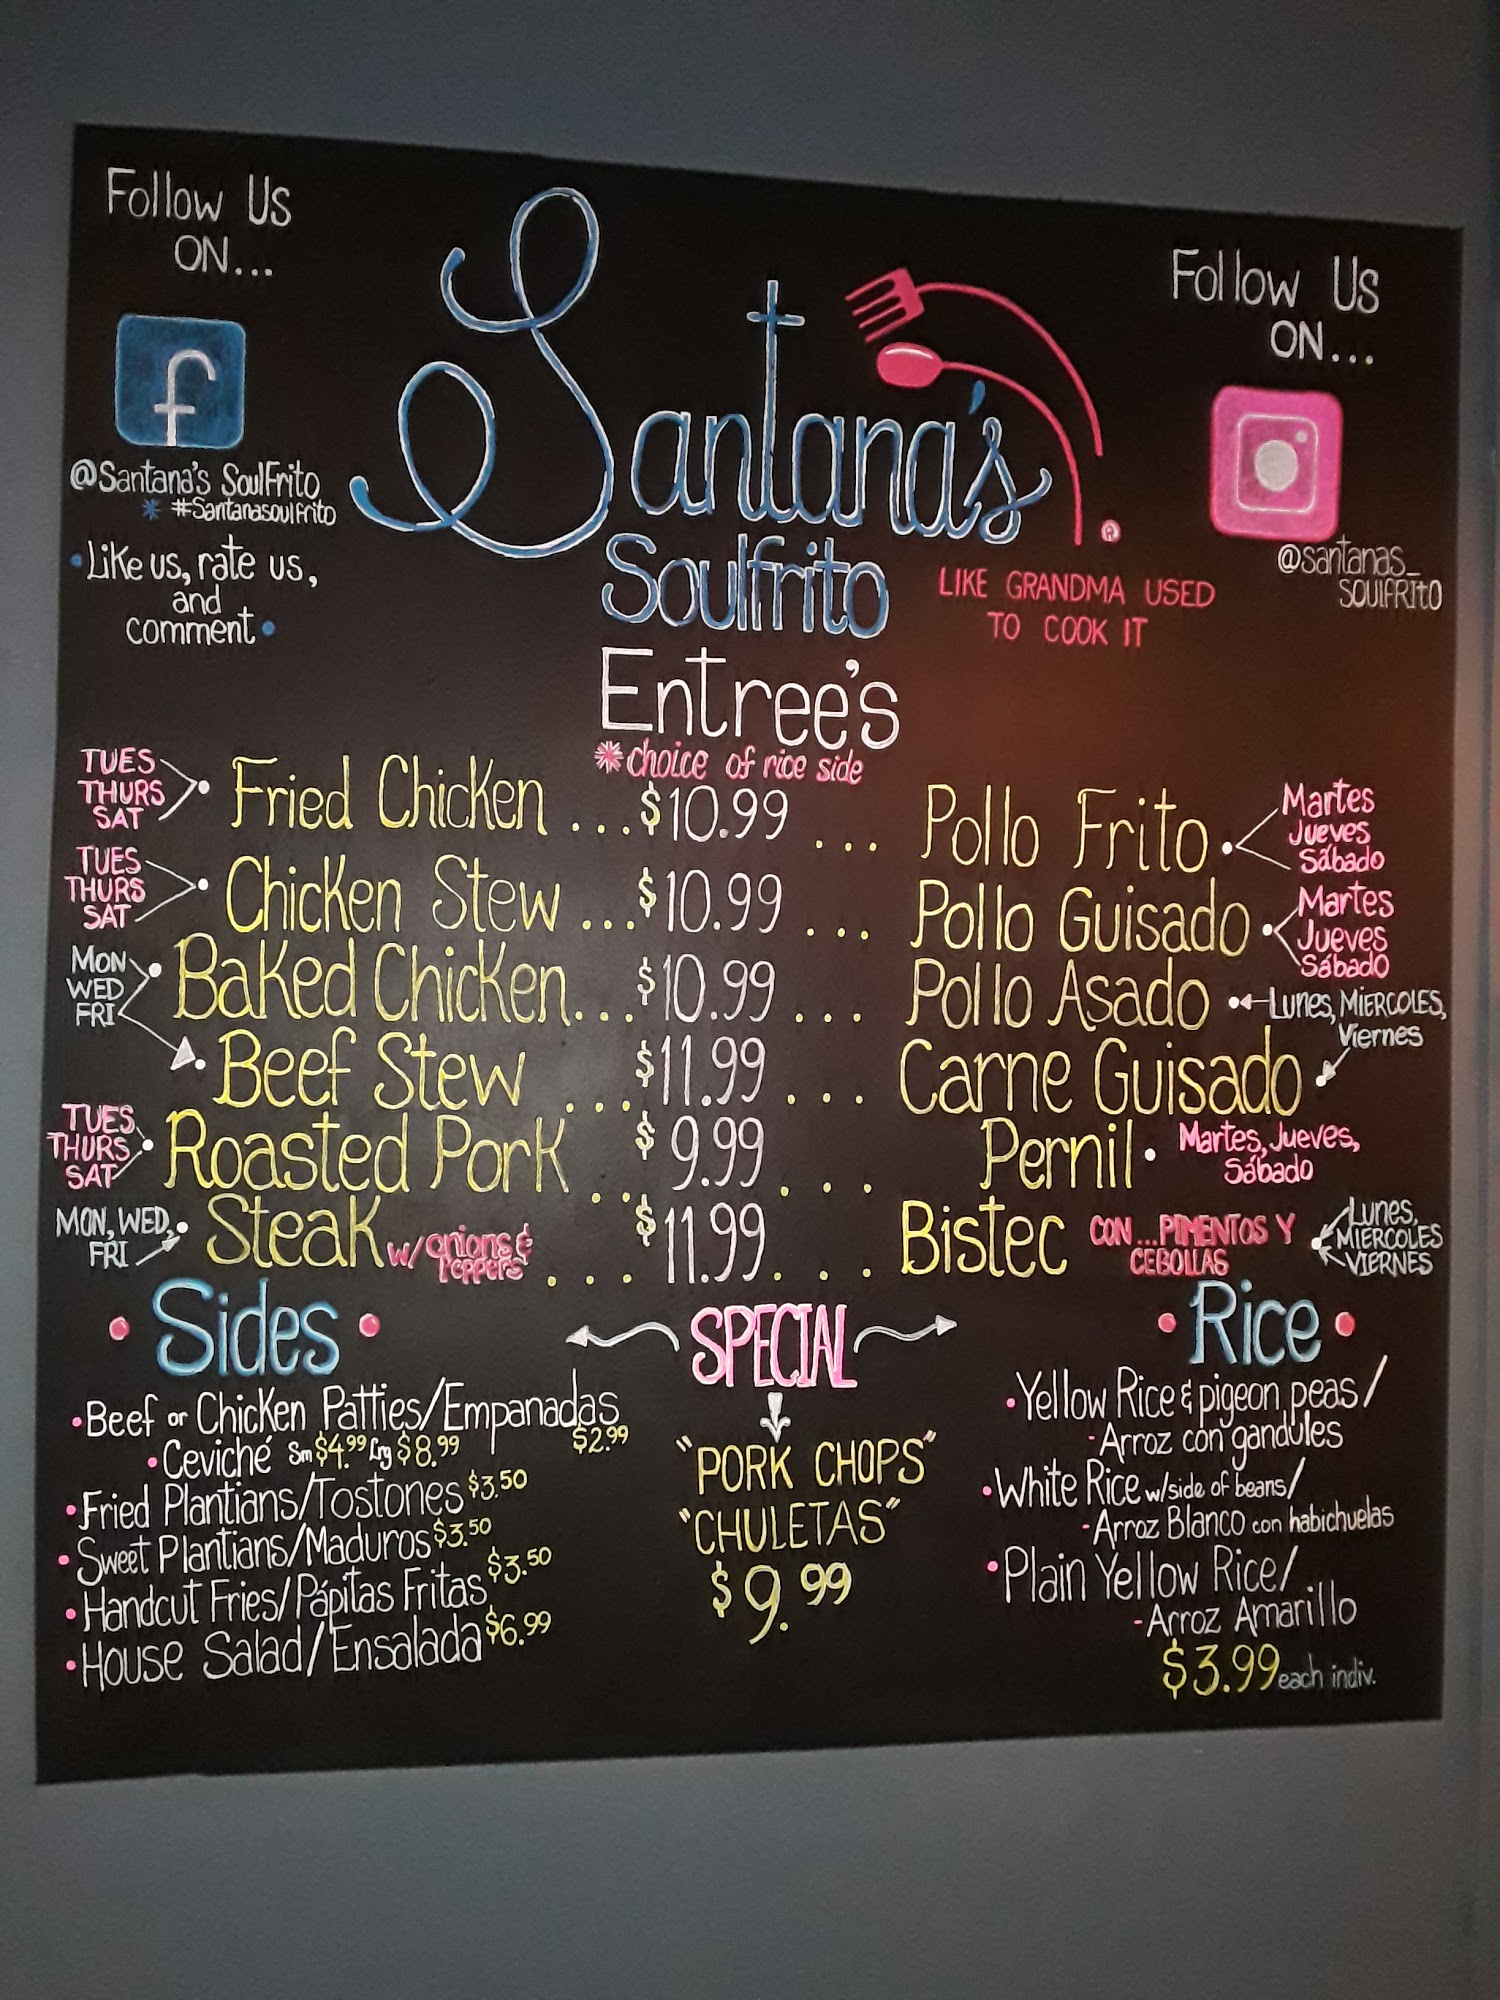 Follow Us
ON...
@Santana's SoulFrito
* #Santanasoulfrito
• Like us, rate us,
and
comment •
Santana's
Soulfrito
®
LIKE GRANDMA USED
TO COOK IT
Follow Us
ON...
@santanas_
SOUlFRItO
Entree's
*choice of rice side
TUES
THURS
SAT
Fried Chicken ... $10.99 ... Pollo Frito
Martes
Jueves
Sábado
TUES
THURS
SAT
Chicken Stew ... $10.99 ... Pollo Guisado
Martes
Jueves
Sábado
MON
WED
FRI
Baked Chicken... $10.99 ... Pollo Asado
Lunes, MIERCOLES,
Viernes
Beef Stew ... $11.99 ... Carne Guisado
TUES
THURS
SAT
Roasted Pork .. $9.99 ... Pernil
Martes, Jueves,
Sábado
MON, WED,
FRI
Steak w/ onions &
Peppers ... $11.99 ... Bistec CON...PIMENTOS Y
CEBOLLAS
Lunes,
MIERCOLES
VIERNES
• Sides •
• Beef or Chicken Patties/Empanadas
$2.99
• Ceviché Sm $4.99 Lrg $8.99
• Fried Plantians/Tostones $3.50
• Sweet Plantians/Maduros $3.50
• Handcut Fries/Pápitas Fritas $3.50
• House Salad/Ensalada $6.99
SPECIAL
"PORK CHOPS"
"CHULETAS"
$9.99
• Rice •
• Yellow Rice & pigeon peas/
- Arroz con gandules
• White Rice w/side of beans/
- Arroz Blanco con habichuelas
• Plain Yellow Rice/
- Arroz Amarillo
$3.99 each indiv.